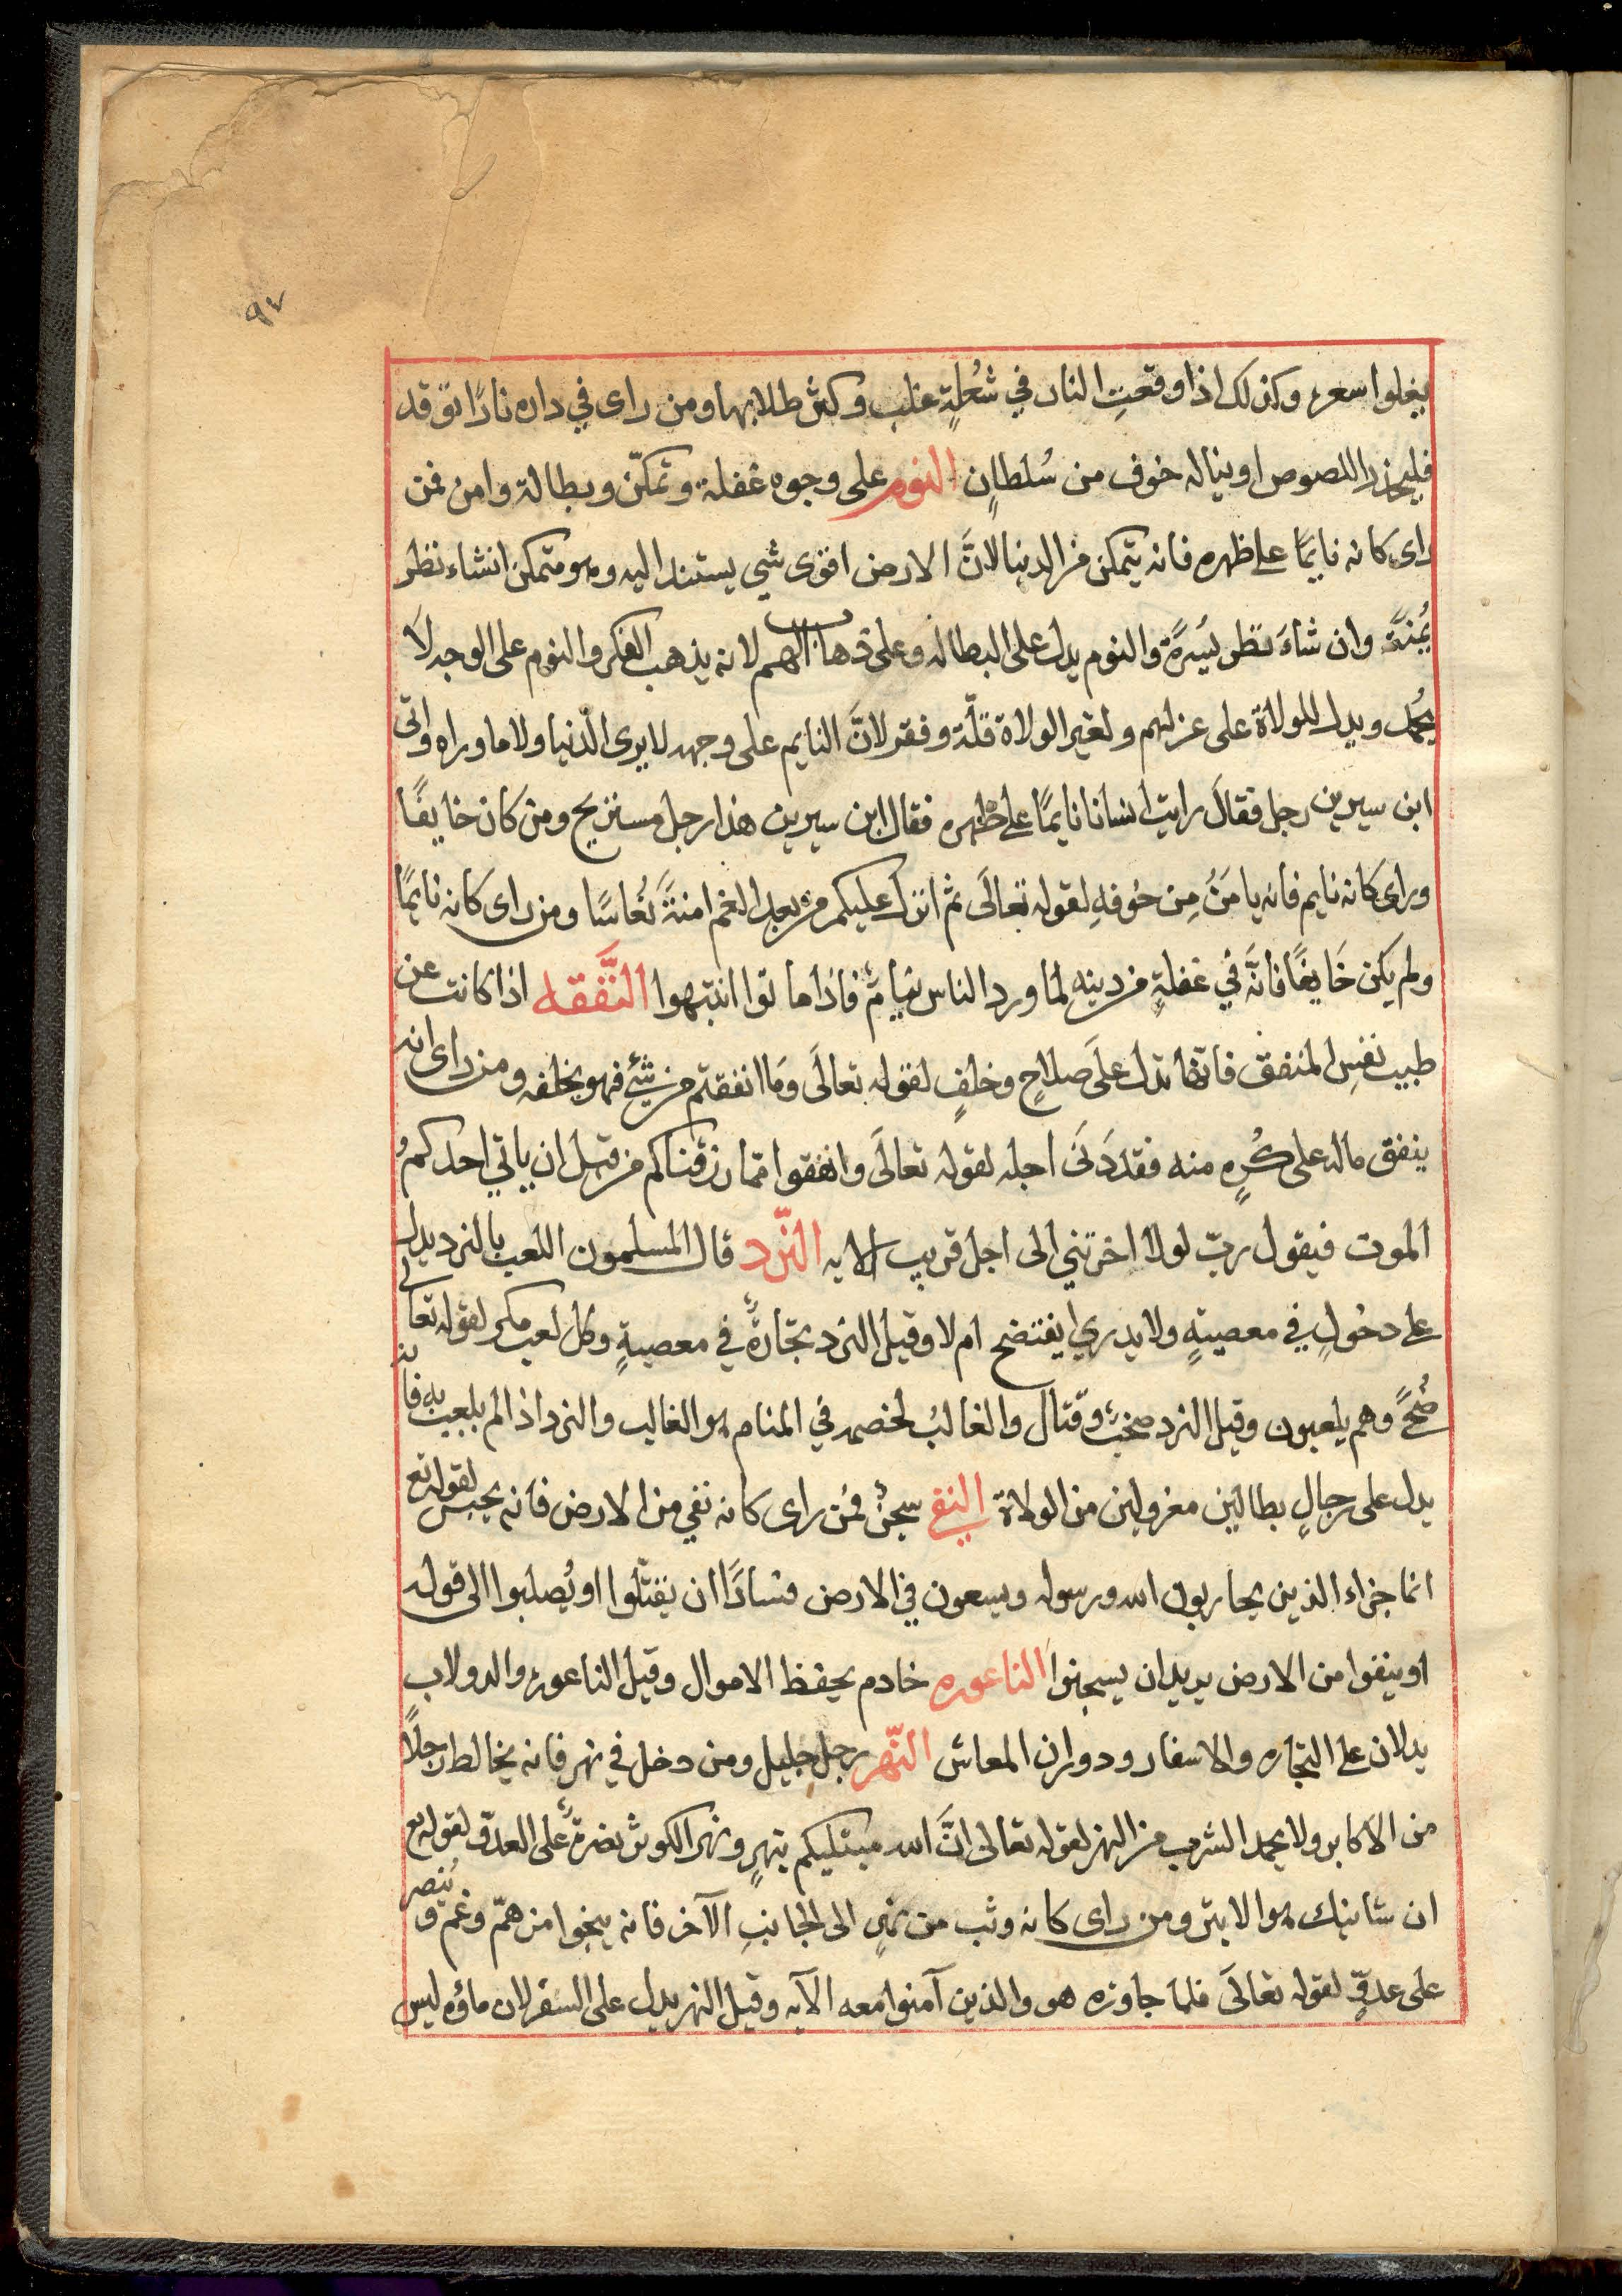 ٩٧
يغلوا سعره وكذلك اذا وقعتِ النار في شعُلةٍ غلب وكثر طلابها ومن راى في داره نارًا توقد
فليحذر اللصوص او يناله خوف من سُلطانٍ النوم على وجوه غفلة وتمكّن وبطالة وامن فمن
راى كانه نايمًا على ظهره فانه يتمكن من الدنيا لانَّ الارض اقوى شي يستند اليه وهو متمكن انشاء نظر
يُمنةً وان شاءَ نظر يَسُرةً والنوم يدل على البطاله وعلى ذهاب الهم لانه يذهب الفكر والنوم على الوجه لا
يُحمد ويدل للولاة على عزلهم ولغير الولاة قلّة وفقر لانَّ النايم على وجهه لا يرى الدّنيا ولا ما وراه واتى
ابن سيرين رجل فقالَ رايت انسانا نايمًا على ظهره فقال ابن سيرين هذا رجل مستريح ومن كان خايفًا
وراى كانه نايم فانه يامَنُ مِن خوفهِ لقوله تعالَى ثم انزل عليكم من بعد الغم امنةً نُعَاسًا ومن راى كانه نايمًا
ولم يكن خَايفًا فانَّه في غفلةٍ من دينه لما ورد الناس نيامٌ فاذا ماتوا انتبهوا النَّفَقه اذا كانت عن
طيب نفسِ المنفق فانها تدل علَى صلاحٍ وخلفٍ لقوله تعالَى وَما انفقتم من شيءٍ فهو يخلفه ومن راى انه
ينفق ماله على كُرهٍ منه فقد دَنَى اجله لقوله تعالَى وانفقوا ممّا رزقناكم من قبل ان ياتي احدكمُ
الموت فيقول ربّ لولا اخرتني الى اجل قريب الايه النّرد قال المسلمون اللعب بالنرد يدل
على دخُولٍ في معصيةٍ ولا يدري ايفتضح ام لا وقيل النرد تجّارةٌ في معصيةٍ وكل لعب مكر لقوله تعالى
ضُحًى وهم يلعبون وقيل النرد صخبٌ وقتال والغالبُ لخصمه في المنام هو الغالب والنرد اذا لم يلعب به فانه
يدل على رجالٍ بطالين معزولين من الولاة النفي سجنٌ فمن راى كانه نفي من الارض فانه يحبس لقوله تع
انما جزاء الذين يحاربون الله ورسوله ويسعون في الارض فسادًا ان يقتّلوا او يُصلبوا الى قوله
او ينفوا من الارض يريد ان يسجنوا الناعوره خادم يحفظ الاموال وقيل الناعوره والدولاب
يدلان على التجاره والاسفار ودوران المعاش النّهر رجل جليل ومن دخل في نهر فانه يخالط رجلًا
من الاكابر ولا يحمد الشرب من النهر لقوله تعالى انَّ الله مبتليكم بنهرٍ ونهر الكوثر نصرةٌ على العدّو لقوله تع
ان شانيك هو الابتر ومن راى كانه وثب من نهرٍ الى الجانبِ الآخر فانه ينجوا من همّ وغم وينصر
على عدوّ لقوله تعالَى فلما جاوزه هو والذين آمنوا معه الآيه وقيل النهر يدل على السفر لان ماؤه ليس